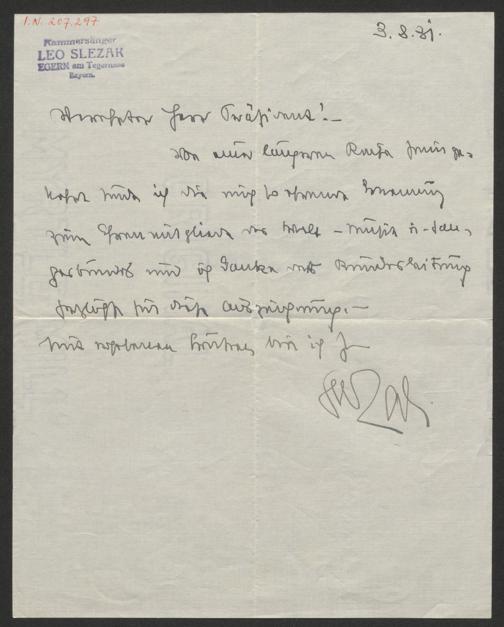 I.N. 207.297
3.8.31.
Kammersänger
LEO SLEZAK
EGERN am Tegernsee
Bayern.
Verehrter Herr Präsident! –
Von einer längeren Reise heimge-
kehrt finde ich die mich so ehrende Ernennung
zum Ehrenmitgliede des – Musik u. – San-
gesbundes und ich danke der Bundesleitung
herzlichst für diese Auszeichnung. –
Mit ergebenen Grüssen bin ich Ihr
Slezak